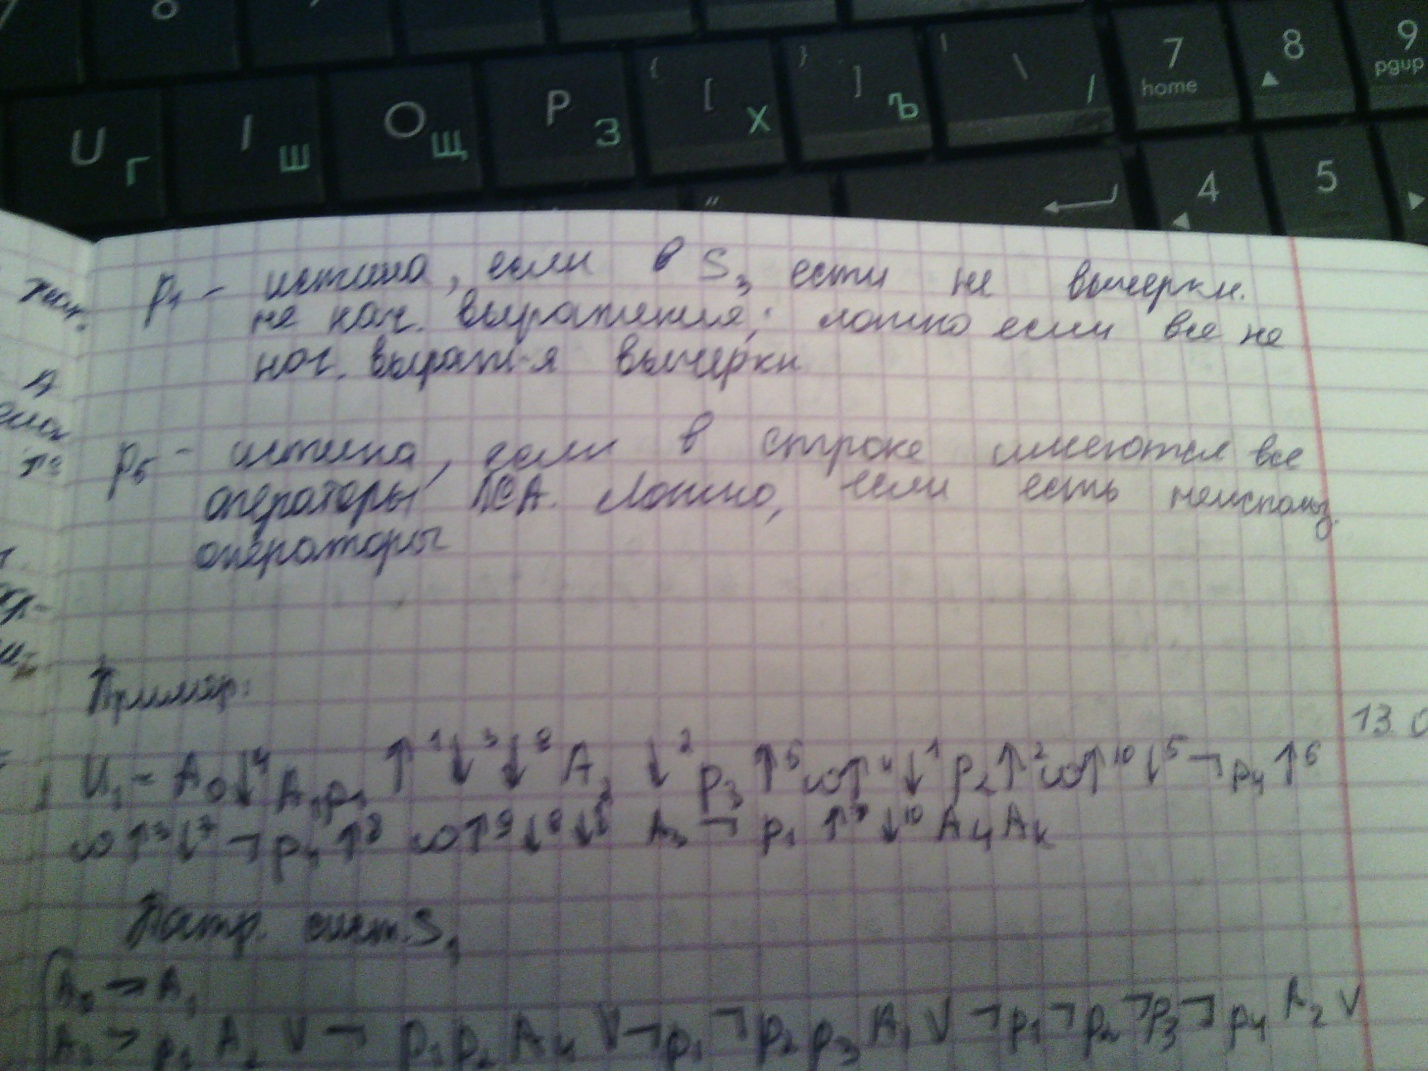 U Г I Ш O Щ P З { [ Х } ] Ъ | \ / 7 home 8 9 pgup
" 4 5
p₁ - истина, если в S₃ есть не вычеркн.
не нач. выражения; ложно если все не
нач. выраж-я вычеркн
p₅ - истина, если в строке имеются все
операторы ЛСА. Ложно, если есть неиспольз.
операторы
Пример:
13.0
U₁ - A₀ ↓⁴ A₁ p₁ ↑¹ ↓³ ↓⁸ A₂ ↓² p₃ ↑⁵ ω ↑⁴ ↓¹ p₂ ↑² ω ↑¹⁰ ↓⁵ ¬ p₄ ↑⁶
ω ↑³ ↓⁷ ¬ p₄ ↑⁸ ω ↑⁹ ↓ ↓ A₃ ¬ p₁ ↑ ↓¹⁰ A₄ Aₖ
Постр. сист. S₁
A₀ → A₁
A₁ → p₁ A₂ V ¬ p₁ p₂ A₄ V ¬ p₁ ¬ p₂ p₃ A₁ V ¬ p₁ ¬ p₂ ¬ p₃ ¬ p₄ A₂ V